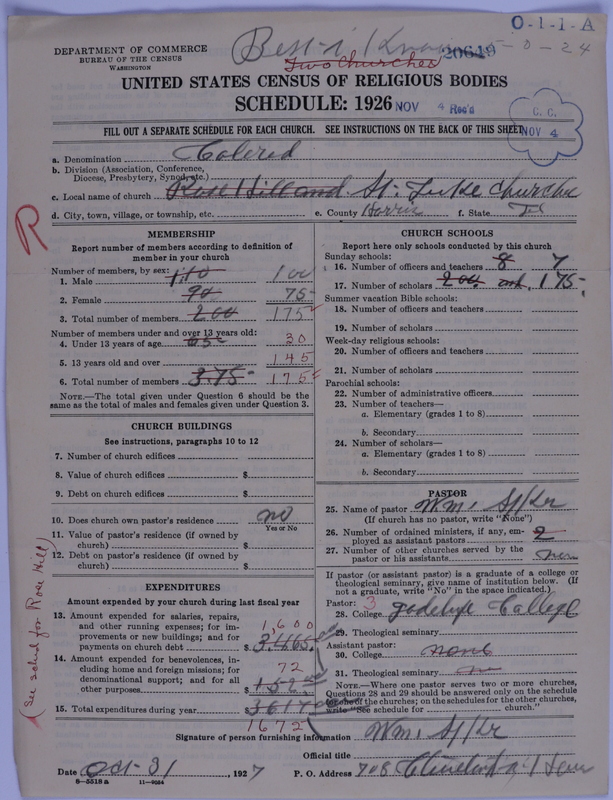 O-1-1-A
DEPARTMENT OF COMMERCE
BUREAU OF THE CENSUS
WASHINGTON
20619 5-0-24
Two Churches
UNITED STATES CENSUS OF RELIGIOUS BODIES
SCHEDULE: 1926
NOV 4 Rec'd
C. C.
NOV 4
FILL OUT A SEPARATE SCHEDULE FOR EACH CHURCH. SEE INSTRUCTIONS ON THE BACK OF THIS SHEET
a. Denomination Colored
b. Division (Association, Conference, Diocese, Presbytery, Synod, etc.)
c. Local name of church Rose Hill and St. Luke Churche
d. City, town, village, or township, etc. e. County Harris f. State Tex
R
MEMBERSHIP
Report number of members according to definition of
member in your church
Number of members, by sex:
1. Male 110 100
2. Female 90 75
3. Total number of members 200 175
Number of members under and over 13 years old:
4. Under 13 years of age 65 30
5. 13 years old and over 145
6. Total number of members 375 175
NOTE.—The total given under Question 6 should be the
same as the total of males and females given under Question 3.
CHURCH BUILDINGS
See instructions, paragraphs 10 to 12
7. Number of church edifices
8. Value of church edifices $
9. Debt on church edifices $
10. Does church own pastor's residence no
Yes or No
11. Value of pastor's residence (if owned by
church) $
12. Debt on pastor's residence (if owned by
church) $
EXPENDITURES
Amount expended by your church during last fiscal year
13. Amount expended for salaries, repairs,
and other running expenses; for im-
provements or new buildings; and for
payments on church debt $ 3,465 1,600
14. Amount expended for benevolences, in-
cluding home and foreign missions; for
denominational support; and for all
other purposes $ 152 72
15. Total expenditures during year $ 3617
1672
(See sched for Rose Hill)
CHURCH SCHOOLS
Report here only schools conducted by this church
Sunday schools:
16. Number of officers and teachers 8 7
17. Number of scholars 200 175
Summer vacation Bible schools:
18. Number of officers and teachers
19. Number of scholars
Week-day religious schools:
20. Number of officers and teachers
21. Number of scholars
Parochial schools:
22. Number of administrative officers
23. Number of teachers—
a. Elementary (grades 1 to 8)
b. Secondary
24. Number of scholars—
a. Elementary (grades 1 to 8)
b. Secondary
PASTOR
25. Name of pastor Wm.
(If church has no pastor, write "None")
26. Number of ordained ministers, if any, em-
ployed as assistant pastors 2
27. Number of other churches served by the
pastor or his assistants
If pastor (or assistant pastor) is a graduate of a college or
theological seminary, give name of institution below. (If
not a graduate, write "No" in the space indicated.)
Pastor: 3
28. College College
29. Theological seminary
Assistant pastor:
30. College none
31. Theological seminary no
NOTE.—Where one pastor serves two or more churches,
Questions 28 and 29 should be answered only on the schedule
for one of the churches; on the schedules for the other churches,
write "See schedule for church."
Signature of person furnishing information Wm.
Official title
Date Oct-31, 1927 P. O. Address 708
8-5518a 11-9034